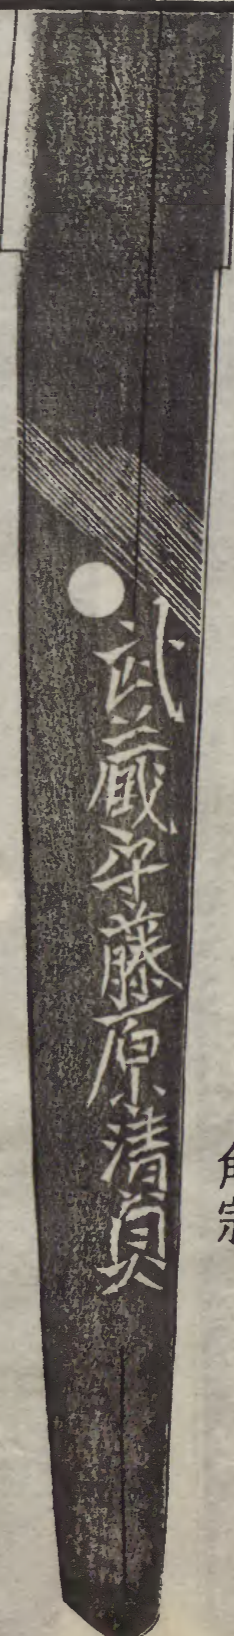 武蔵守藤原清貞